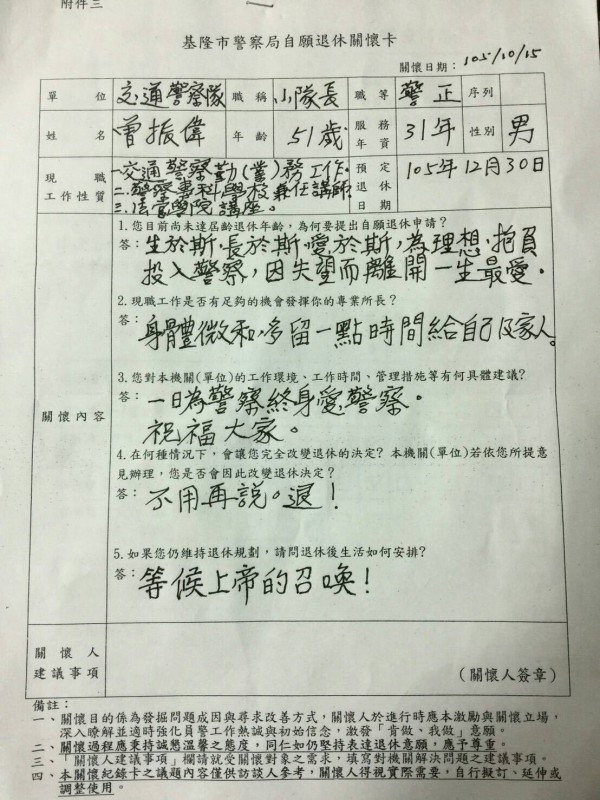 附件三
基隆市警察局自願退休關懷卡
關懷日期：105/10/15
單位 交通警察隊 職稱 小隊長 職等 警正 序列
姓名 曾振偉 年齡 51歲 服務年資 31年 性別 男
現職工作性質 一.交通警察勤(業)務工作.
二.警察專科學校兼任講師.
三.法官學院講座。
預定退休日期 105年12月30日
關懷內容
1.您目前尚未達屆齡退休年齡，為何要提出自願退休申請？
答：生於斯,長於斯,愛於斯,為理想.抱負
投入警察,因失望而離開一生最愛。
2.現職工作是否有足夠的機會發揮你的專業所長？
答：身體微和,多留一點時間給自己及家人。
3.您對本機關(單位)的工作環境、工作時間、管理措施等有何具體建議？
答：一日為警察終身愛警察。
祝福大家。
4.在何種情況下，會讓您完全改變退休的決定？本機關(單位)若依您所提意
見辦理，您是否會因此改變退休決定？
答：不用再說。退！
5.如果您仍維持退休規劃，請問退休後生活如何安排？
答：等候上帝的召喚！
關懷人
建議事項
(關懷人簽章)
備註：
一、關懷目的係為發掘問題成因與尋求改善方式，關懷人於進行時應本激勵與關懷立場，
深入瞭解並適時強化員警工作熱誠與初始信念，激發「肯做、我做」意願。
二、關懷過程應秉持誠懇溫馨之態度，同仁如仍堅持表達退休意願，應予尊重。
三、「關懷人建議事項」欄請就受關懷對象之需求，填寫對機關解決問題之建議事項。
四、本關懷紀錄卡之議題內容僅供訪談人參考，關懷人得視實際需要，自行擬訂、延伸或
調整使用。